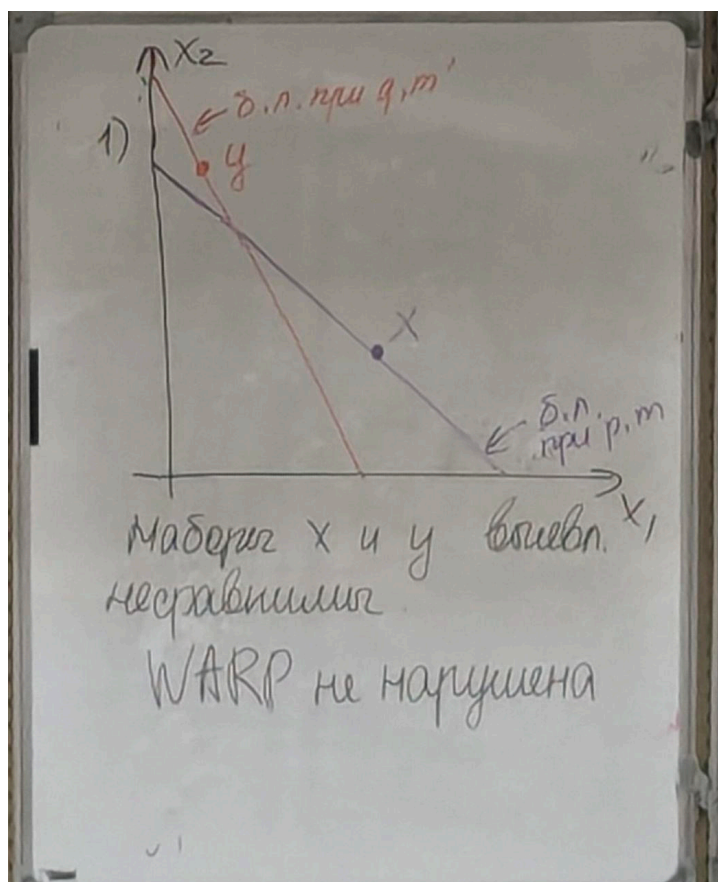 X₂
б.л. при q, m'
1)
y
X
б.л.
при p, m
X₁
Наборы X и y выявл.
несравнимы
WARP не нарушена